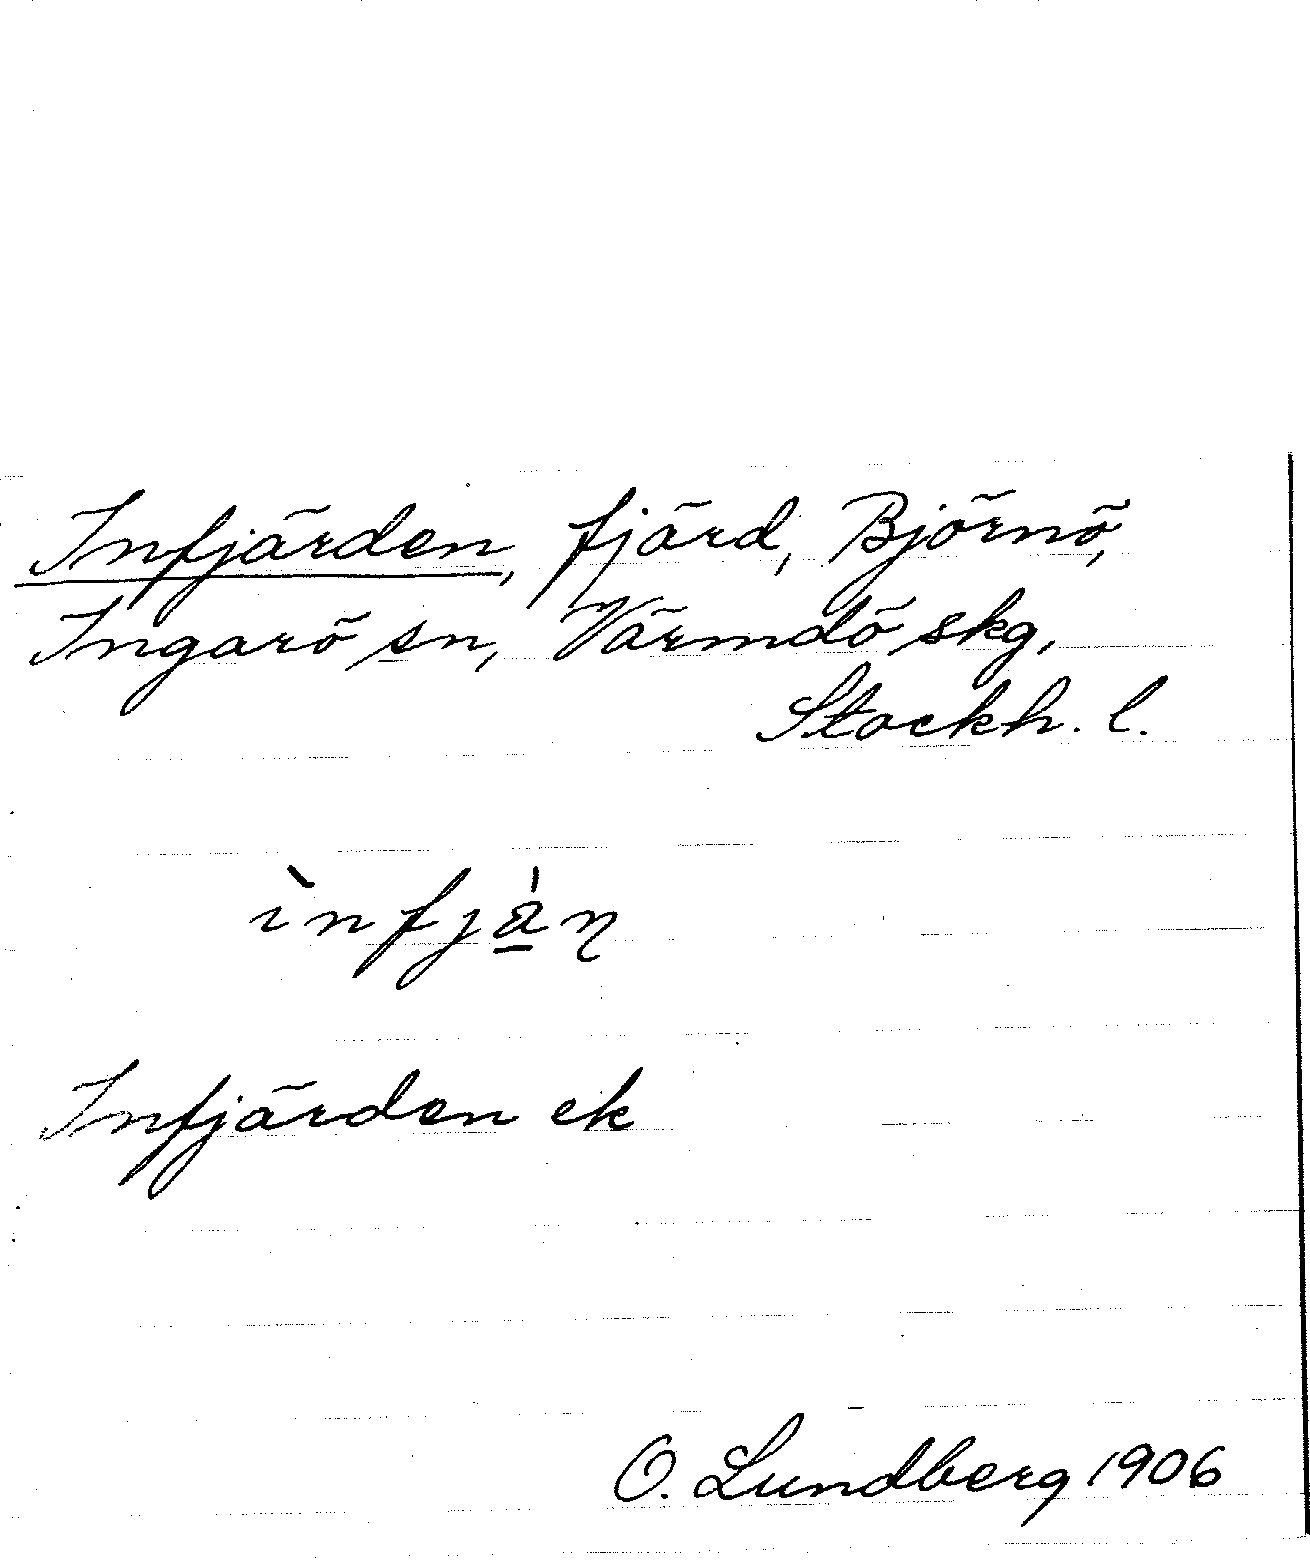 Infjärden, fjärd, Björnö,
Ingarö sn, Värmdö skg,
Stockh. l.
Infjärden ek
O. Lundberg 1906